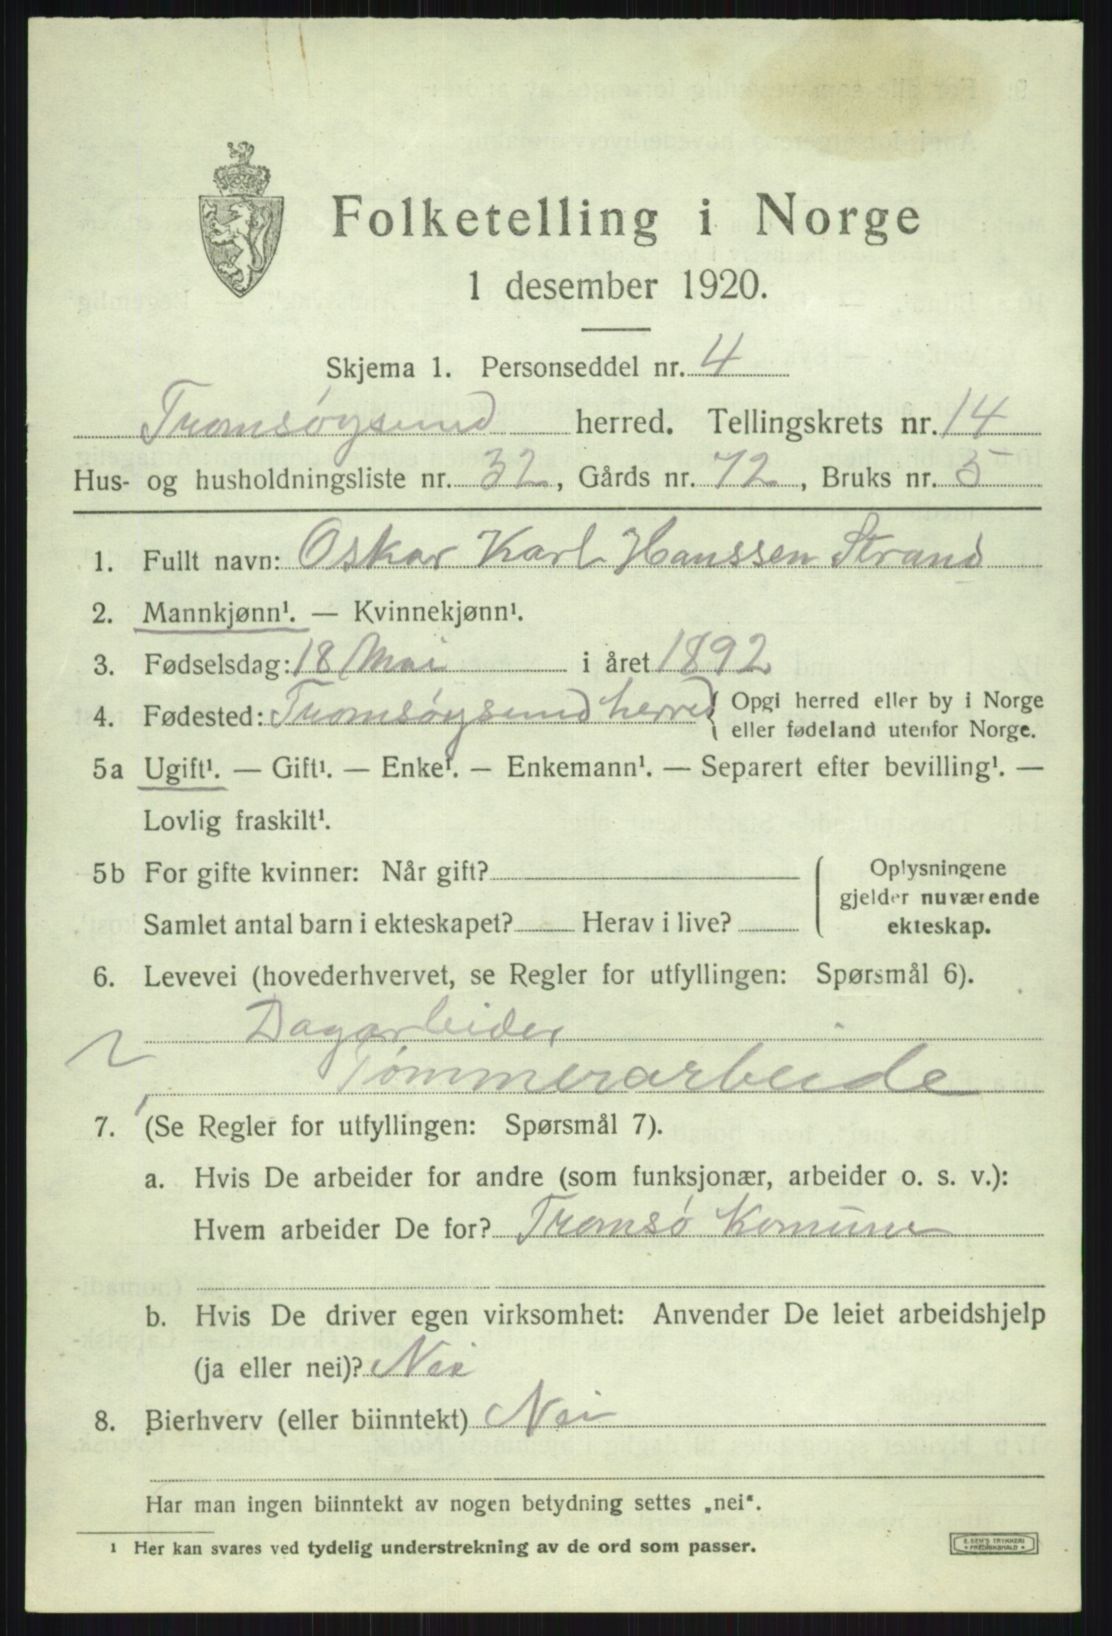 Folketelling i Norge
1 desember 1920.
Skjema 1. Personseddel nr. 4
Tromsøysund herred. Tellingskrets nr. 14
Hus- og husholdningsliste nr. 32, Gårds nr. 72, Bruks nr. 5
1. Fullt navn: Oskar Karl Hanssen Strand
2. Mannkjønn¹. — Kvinnekjønn¹.
3. Fødselsdag: 18 Mai i året 1892
4. Fødested: Tromsøysund herred { Opgi herred eller by i Norge
eller fødeland utenfor Norge.
5a Ugift¹. — Gift¹. — Enke¹. — Enkemann¹. — Separert efter bevilling¹. —
Lovlig fraskilt¹.
5b For gifte kvinner: Når gift?
Samlet antal barn i ekteskapet? Herav i live?
Oplysningene
gjelder nuværende
ekteskap.
6. Levevei (hovederhvervet, se Regler for utfyllingen: Spørsmål 6).
Dagarbeider
Tømmerarbeide
7. (Se Regler for utfyllingen: Spørsmål 7).
a. Hvis De arbeider for andre (som funksjonær, arbeider o. s. v.):
Hvem arbeider De for? Tromsø Komune
b. Hvis De driver egen virksomhet: Anvender De leiet arbeidshjelp
(ja eller nei)? Nei
8. Bierhverv (eller biinntekt) Nei
Har man ingen biinntekt av nogen betydning settes „nei“.
¹ Her kan svares ved tydelig understrekning av de ord som passer.
E. SEM'S TRYKKERI
FREDRIKSHALD